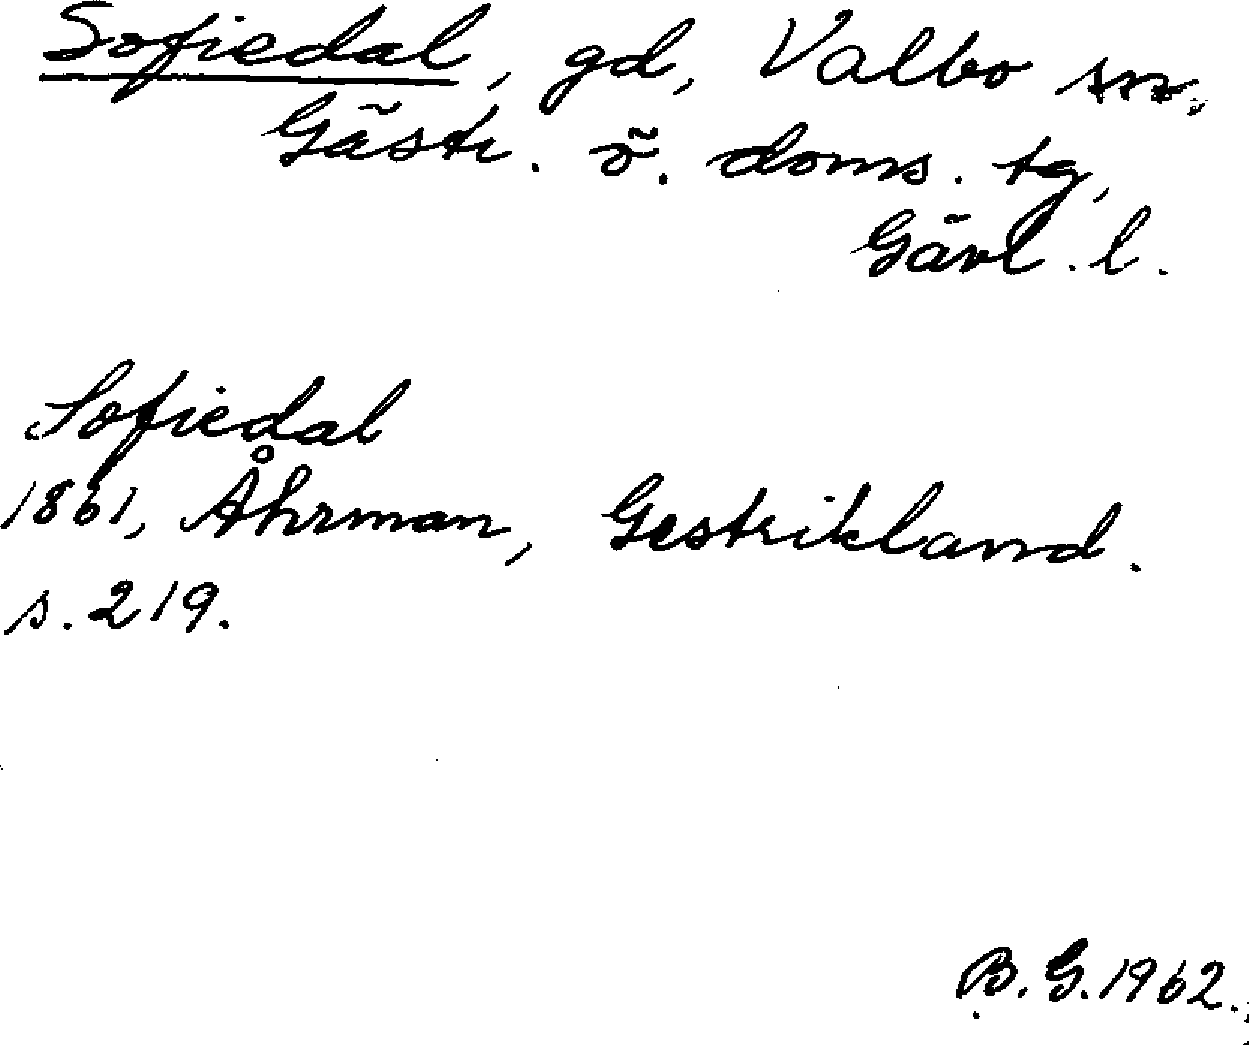 Sofiedal, gd, Valbo sn,
Gästr. ö. doms. tg,
Gävl. l.
Sofiedal
1861, Åhrman, Gestrikland.
s. 219.
B. G. 1962.